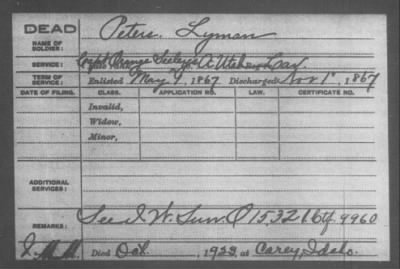 DEAD
NAME OF SOLDIER: Peters, Lyman
SERVICE: Capt Orange Seeleys A Utah Cav.
TERM OF SERVICE: Enlisted May 9, 1867 Discharged Nov 1, 1867
DATE OF FILING. CLASS. APPLICATION NO. LAW. CERTIFICATE NO.
Invalid,
Widow,
Minor,
ADDITIONAL SERVICES:
See I. W. Surv. O 1532 6 9960
REMARKS:
Died Oct. , 1923, at Carey, Idaho.